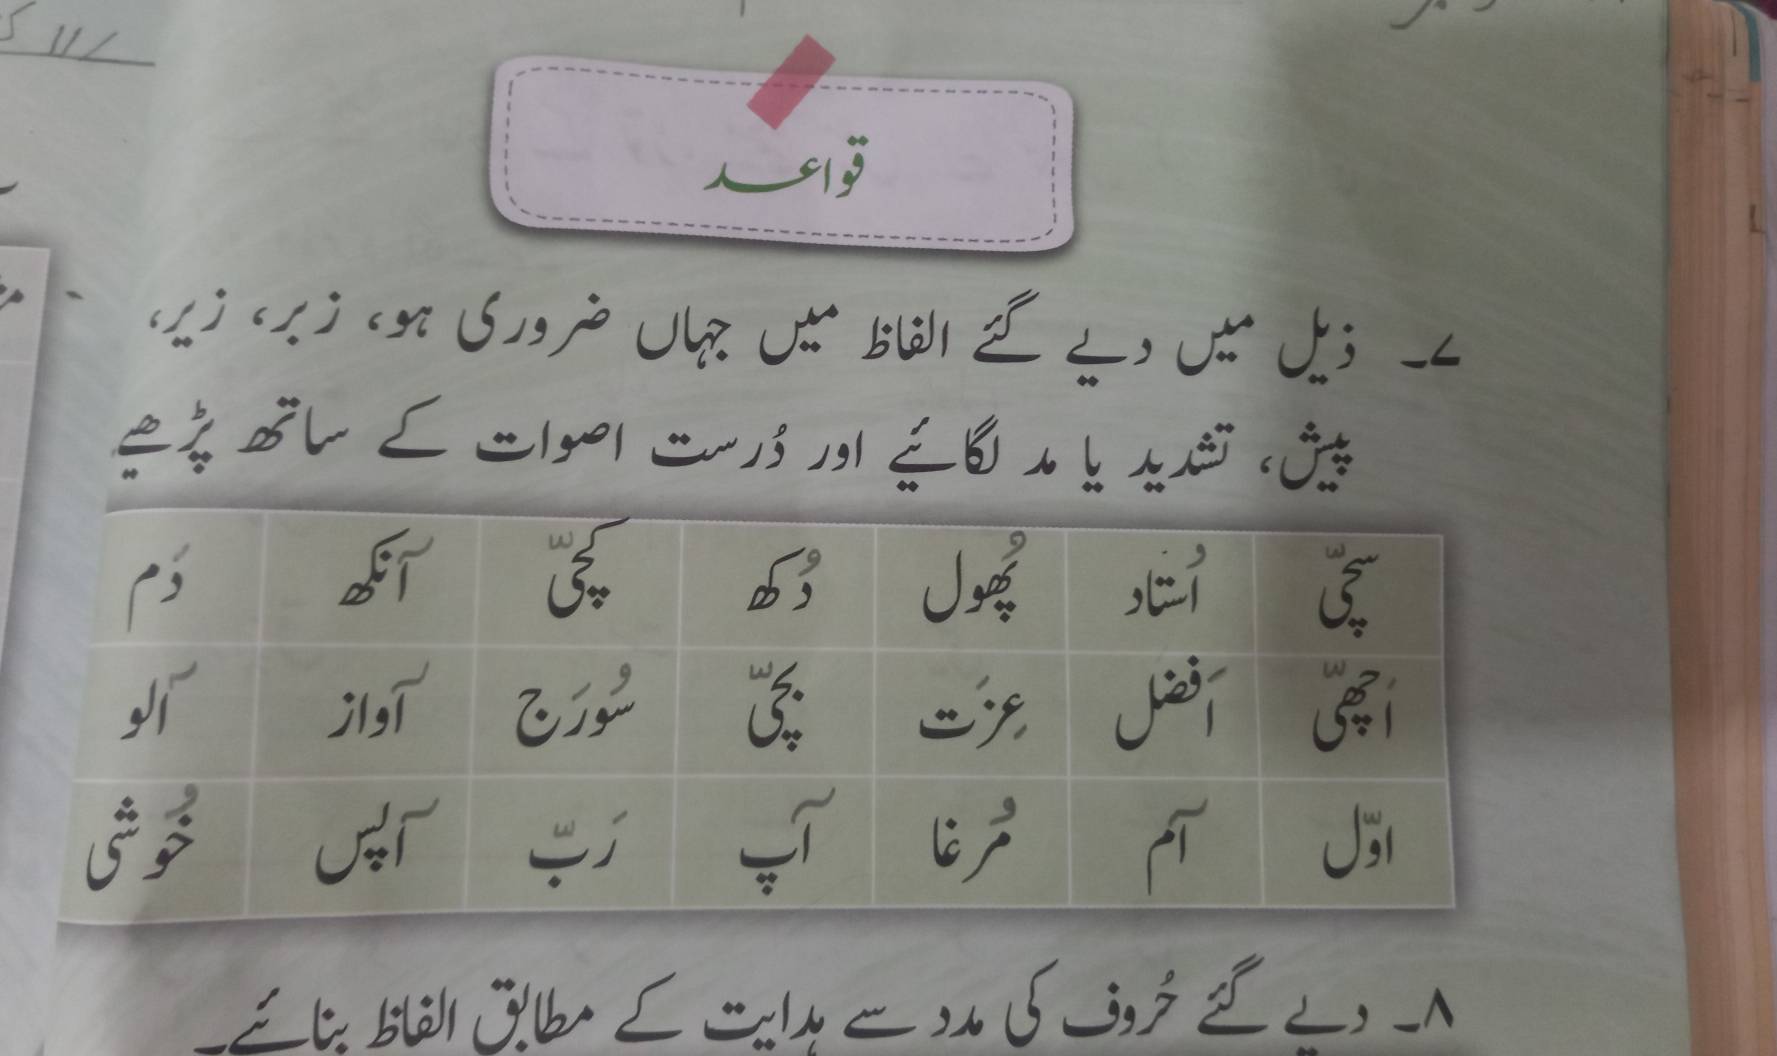 قواعد
۷۔ ذیل میں دیے گئے الفاظ میں جہاں ضروری ہو، زبر، زیر،
پیش، تشدید یا مد لگائیے اور دُرست اصوات کے ساتھ پڑھیے
سچّی اُستاد پُھول دُکھ کچّی آنکھ دَم
اَچھّی اَفضل عِزَت بچّی سُورَج آواز آلو
اوّل آم مُرغا آپ رَبّ آپس خُوشی
۸۔ دیے گئے حُروف کی مدد سے ہدایت کے مطابق الفاظ بنائیے۔